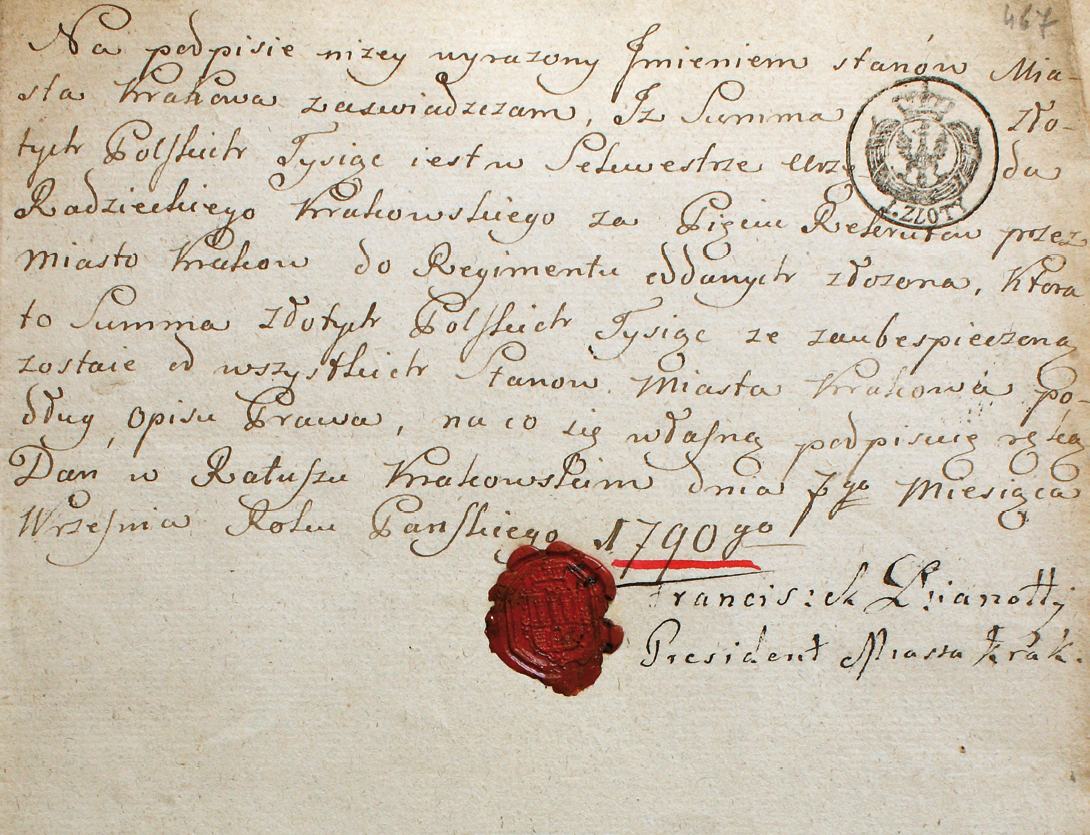 467
Na podpisie niżey wyrazony Jmieniem stanów Mia-
sta Krakowa zaswiadzczam, Jż Summa Zło-
1. ZŁOTY
tych Polskich Tysiąc iest w Sekwestrze Urzę da
Radzieckiego Krakowskiego za Pięciu Rekrutów przez
miasto Krakow do Regimentu oddanych złozona, Ktora
to Summa złotych Polskich Tysiąc ze zaubespieczoną
zostaie od wszystkich Stanow Miasta Krakowa po-
dług opisu Prawa, na co się własną podpisuię ręką
Dan w Ratuszu Krakowskim dnia 7go Miesiąca
Wrzesnia Roku Pańskiego 1790go
Franciszek
President Miasta Krak: